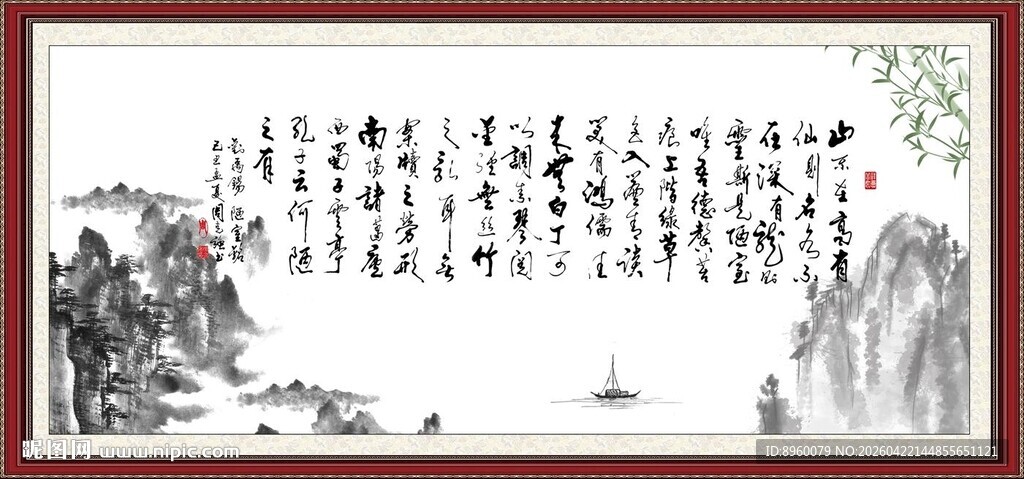 山不在高有
仙則名水不
在深有龍則
靈斯是陋室
唯吾德馨苔
痕上階綠草
色入簾青談
笑有鴻儒往
來無白丁可
以調素琴閱
金經無絲竹
之亂耳無
案牘之勞形
南陽諸葛廬
西蜀子雲亭
孔子云何陋
之有
劉禹錫 陋室銘
己丑孟夏周
昵图网 www.nipic.com
ID:8960079 NO:20260422144855651121